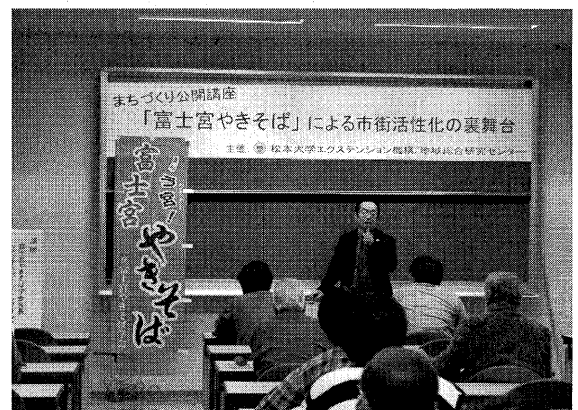 まちづくり公開講座
「富士宮やきそば」による市街活性化の裏舞台
主催 松本大学エクステンション機構/地域総合研究センター
う宮!
富士宮
やきそば